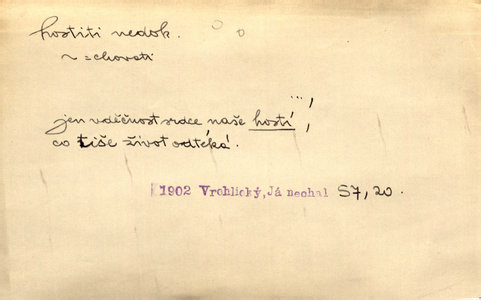 hostiti nedok.
~ = chovati
...,
jen vděčnost srdce naše hostí,
co tiše život odtéká.
1902 Vrchlický, Já nechal 57, 20.